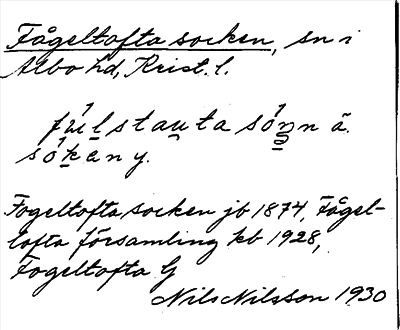 Fågeltofta socken, sn i
Albo hd, Krist. l.
fúlstauta sónnä.
sókäny.
Fogeltofta socken jb 1874, Fågel-
tofta församling kb 1928,
Fogeltofta G
Nils Nilsson 1930